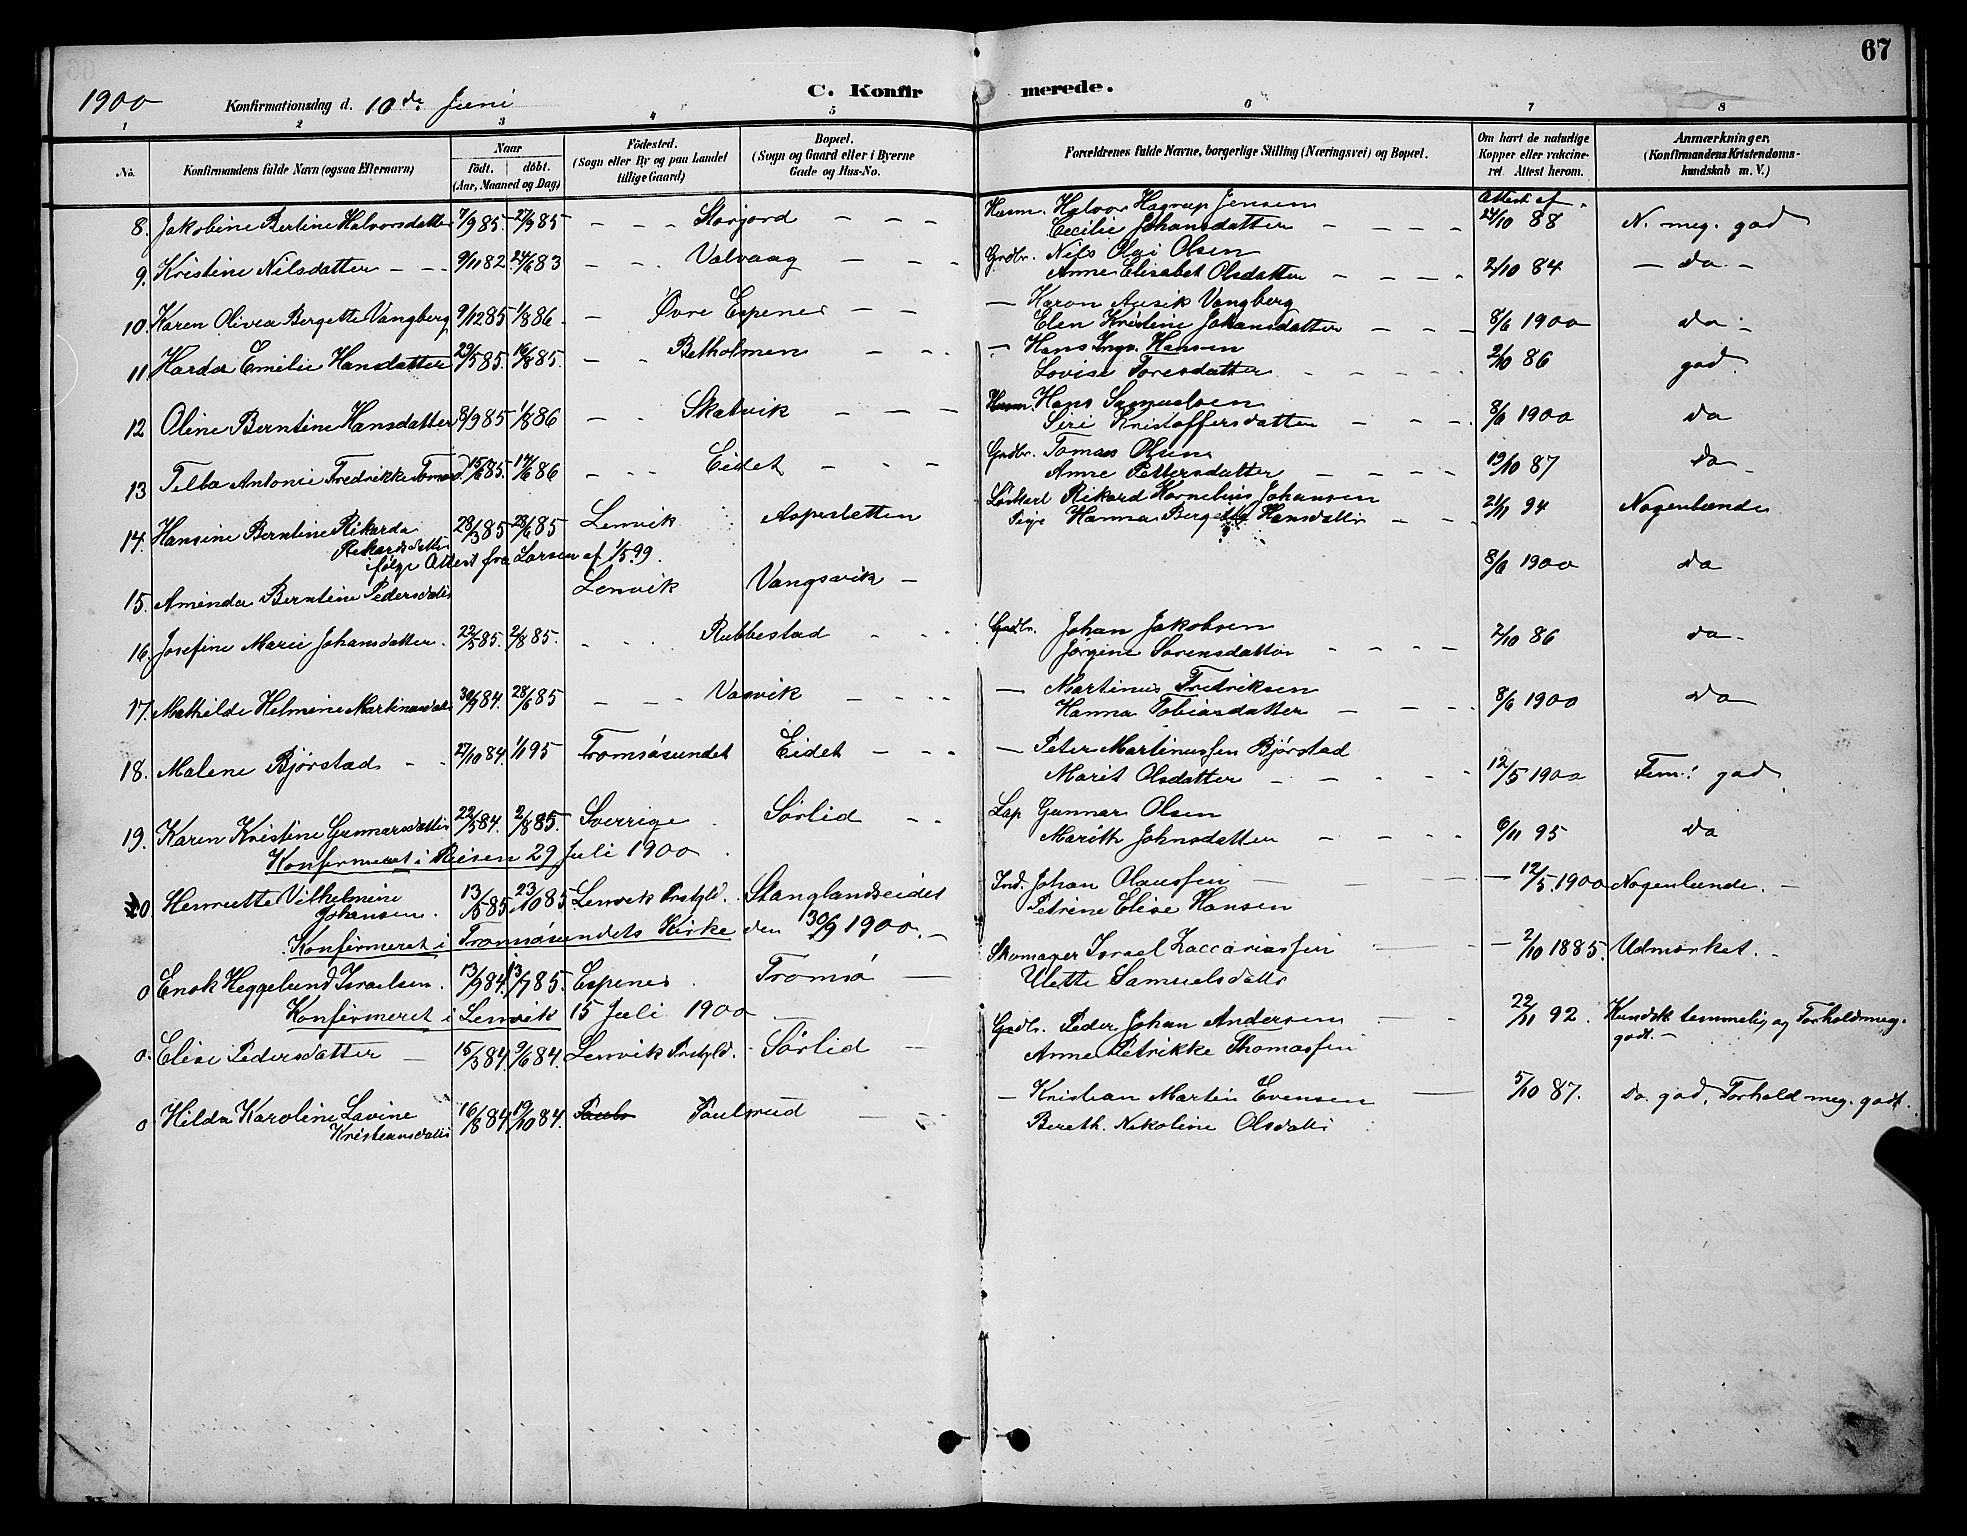 67
1900 Konfirmationsdag d. 10de Juni C. Konfirmerede.
1 2 3 4 5 6 7 8
No. Konfirmandens fulde Navn (ogsaa Efternavn) Naar födt. döbt. (Aar, Maaned og Dag) Födested. (Sogn eller By og paa Landet tillige Gaard) Bopæl. (Sogn og Gaard eller i Byerne Gade og Hus-No. Forældrenes fulde Navne, borgerlige Stilling (Næringsvei) og Bopæl. Om havt de naturlige Kopper eller vakcineret Attest herom. Anmærkninger, (Konfirmandens Kristendomskundskab m. V.)
Attest af
8. Jakobine Bertine Halvorsdatter 7/9 85. 27/9 85 - - - Storjord - - - Husm. Halvor Hagrup Jensen 24/10 88 N. meg. god
Cecilie Johansdatter - - - -
9. Kristine Nilsdatter - - - 9/11 82 24/6 83 - - - Valvaag - - - Grdbr. Nils Olai Olsen 2/10 84 - da -
Anne Elisabet Olsdatter - - - -
10. Karen Olivea Bergette Vangberg 9/12 85 1/8 86. - Øvre Espenes - - — Haron Ausik Vangberg 8/6 1900 da -
Elen Kristine Johansdatter - - -
11. Harda Emilie Hansdatter 29/5 85. 16/8 85. - - Betholmen - - - — Hans Ingv. Hansen 2/10 86 god.
Lovise Toresdatter - - - -
12 Oline Berntine Hansdatter 8/9 85 1/8 86 - - Skatvik - - - Husm. Hans Samuelsen 8/6 1900 da
Siri Kristoffersdatter - - -
13 Tilba Antonie Fredrikke Tomasd. 15/6 85. 14/6 86 - - Eidet - - - Grdbr. Tomas Olsen 19/10 87 da -
Anne Pettersdatter - - - -
14. Hansine Berntine Rikarda 28/3 85 28/6 85 Lenvik Aspesletten Løskarl Rikard Kornelius Johansen 21/11 94 Nogenlunde
Rikardsdatter Pige Hanna Bergette Hansdatter - -
ifølge Attest fra Larsen af 1/5 99.
15. Aminda Berntine Pedersdatter Lenvik Vangsvik - 8/6 1900 da
16. Josefine Marie Johansdatter. 22/5 85. 2/8 85. - - Rubbestad - - - Grdbr. Johan Jakobsen 2/10 86 da -
Jørgine Sørensdatter - - - -
17. Mathilde Helmine Martinusdatter 30/9 84. 28/6 85 - - - Vasvik - - - — Martinus Fredriksen 8/6 1900 da
Hanna Tobiasdatter - - -
18. Malene Bjørstad - - 27/10 84. 1/11 95 Tromsøsundet Eidet - - - — Peter Martinussen Bjørstad 12/5 1900 Tem. god
Marit Olsdatter - - - -
19. Karen Kristine Gunnarsdatter 22/5 84. 2/8 85. Sverrige Sørlid - - Lap Gunnar Olsen 6/11 95 da
Marith Johnsdatter - - - -
Konfirmeret i Reisen 29 Juli 1900
20 Henriette Vilhelmine 13/5 85 23/10 85 Lenvik Prstgld. Stanglandseidet Ind. Johan Olaussen - - 12/5. 1900 Nogenlunde. -
Johansen. Petrine Elise Hansen
Konfirmeret i Tromsøsundets Kirke den 30/9 1900. -
0 Enok Heggelund Israelsen. 13/9 84. 13/7 85. Espenes Tromsø - Skomager Israel Zaccariassen - 2/10 1885. Udmærket. -
Ulette Samuelsdatter
Konfirmeret i Lenvik 15 Juli 1900
0. Elise Pedersdatter - 15/3 84. 9/6 84. Lenvik Prstgld. - Sørlid - Grdbr. Peder Johan Andersen - 22/11 92. Kundsk. temmelig og Forhold meg.
Anne Petrikke Thomassen godt. -
0 Hilda Karoline Lavine 16/8 84 19/10 84. Pauls Paulsrud - - — Kristian Martin Evensen - 5/10 87. do. god, Forhold meg. godt.
Kristiansdatter Bereth. Nikoline Olsdatter